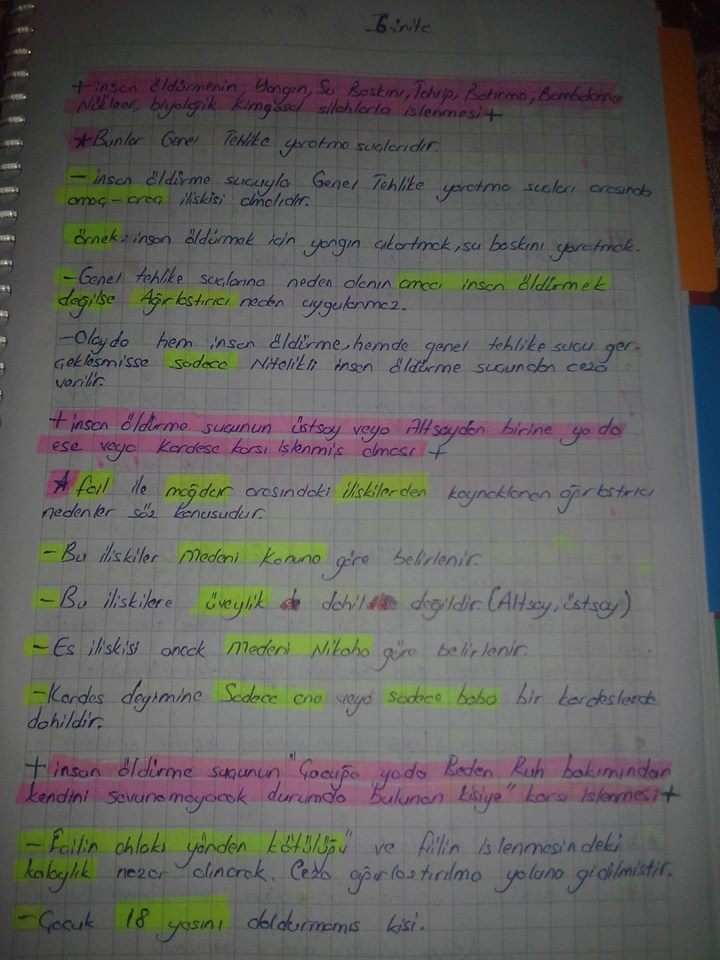 1. Ünite
+insan öldürmenin, Yangın, Su Baskını, Tahrip, Batırma, Bombalama
Nükleer, biyolojik kimyasal silahlarla işlenmesi+
★Bunlar Genel Tehlike yaratma suçlarıdır.
-insan öldürme suçuyla Genel Tehlike yaratma suçları arasında
amaç-araç ilişkisi olmalıdır.
örnek: insan öldürmek için yangın çıkartmak, su baskını yaratmak.
-Genel tehlike suçlarına neden olanın amacı insan öldürmek
değilse Ağırlaştırıcı neden uygulanmaz.
-Olayda hem insan öldürme, hemde genel tehlike suçu ger-
çekleşmişse sadece Nitelikli insan öldürme suçundan ceza
verilir.
+insan öldürme suçunun üstsoy veya Altsoydan birine ya da
eşe veya Kardeşe karşı işlenmiş olması +
★ fail ile mağdur arasındaki ilişkilerden kaynaklanan ağırlaştırıcı
nedenler söz konusudur.
-Bu ilişkiler Medeni Kanuna göre belirlenir.
-Bu ilişkilere üveylik dahil değildir. (Altsoy, üstsoy)
-Eş ilişkisi ancak Medeni Nikaha göre belirlenir.
-Kardeş deyimine Sadece ana veya sadece baba bir kardeşlerde
dahildir.
+insan öldürme suçunun "Çocuğa yada Beden Ruh bakımından
kendini savunamayacak durumda bulunan kişiye" karşı işlenmesi+
-Failin ahlaki yönden kötülüğü ve fiilin işlenmesindeki
kolaylık nazar alınarak. Ceza ağırlaştırılma yoluna gidilmiştir.
-Çocuk 18 yaşını doldurmamış kişi.